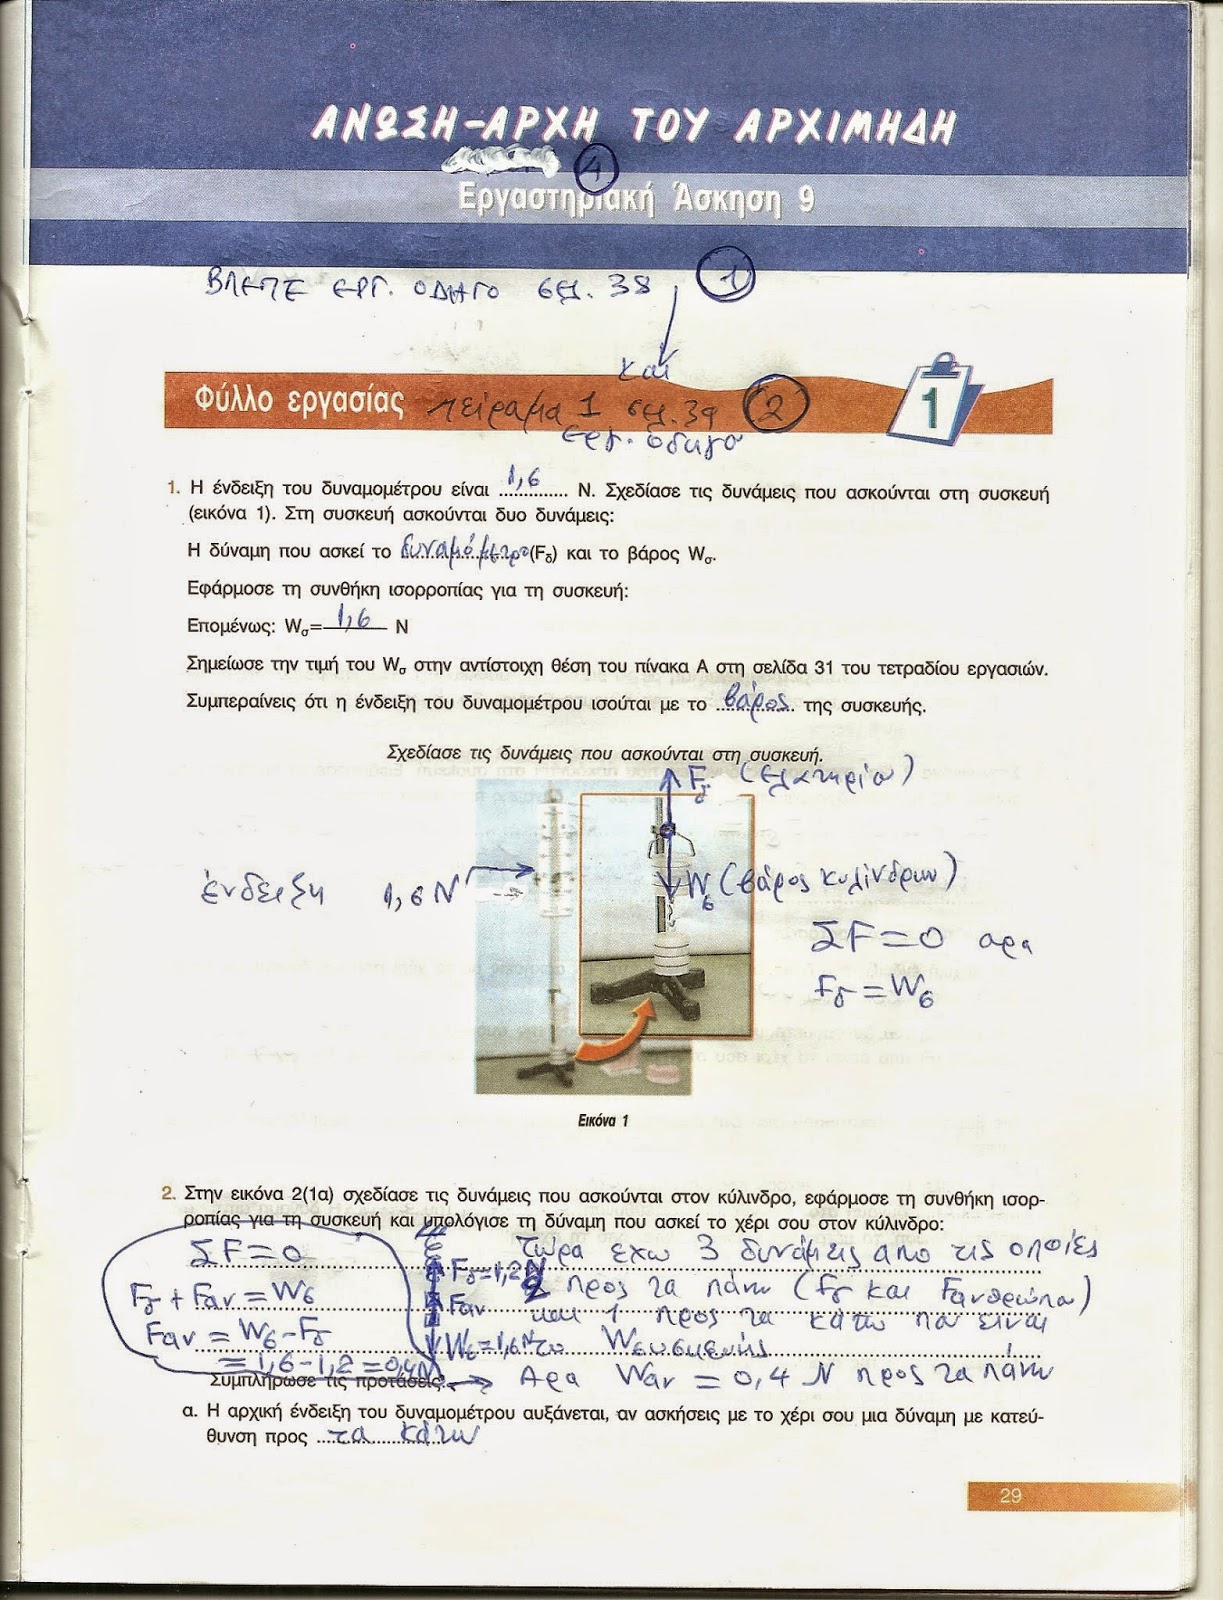 ΑΝΩΣΗ-ΑΡΧΗ ΤΟΥ ΑΡΧΙΜΗΔΗ
4
Εργαστηριακή Άσκηση 9
ΒΛΕΠΕ ΕΡΓ. ΟΔΗΓΟ σελ. 38 1
και
Φύλλο εργασίας πείραμα 1 σελ. 39 2
εργ. οδηγο
1
1. Η ένδειξη του δυναμομέτρου είναι 1,6 N. Σχεδίασε τις δυνάμεις που ασκούνται στη συσκευή
(εικόνα 1). Στη συσκευή ασκούνται δυο δυνάμεις:
Η δύναμη που ασκεί το δυναμόμετρο (Fδ) και το βάρος Wσ.
Εφάρμοσε τη συνθήκη ισορροπίας για τη συσκευή:
Επομένως: Wσ= 1,6 N
Σημείωσε την τιμή του Wσ στην αντίστοιχη θέση του πίνακα Α στη σελίδα 31 του τετραδίου εργασιών.
Συμπεραίνεις ότι η ένδειξη του δυναμομέτρου ισούται με το βάρος της συσκευής.
Σχεδίασε τις δυνάμεις που ασκούνται στη συσκευή.
Fδ (ελατηρίου)
ένδειξη 1,6 N
Wσ (βάρος κυλίνδρων)
ΣF=0 αρα
Fδ = Wσ
Εικόνα 1
2. Στην εικόνα 2(1α) σχεδίασε τις δυνάμεις που ασκούνται στον κύλινδρο, εφάρμοσε τη συνθήκη ισορ-
ροπίας για τη συσκευή και υπολόγισε τη δύναμη που ασκεί το χέρι σου στον κύλινδρο:
ΣF=0
Fδ + Fαν = Wσ
Fαν = Wσ - Fδ
= 1,6 - 1,2 = 0,4N
Fδ=1,2N
Fαν
Wσ=1,6N
τώρα εχω 3 δυνάμεις απο τις οποίες
2 προς τα πάνω (Fδ και Fανθρώπου)
και 1 προς τα κάτω που είναι
το Wσυσκευής
Συμπλήρωσε τις προτάσεις: Αρα Wαν = 0,4 N προς τα πάνω
α. Η αρχική ένδειξη του δυναμομέτρου αυξάνεται, αν ασκήσεις με το χέρι σου μια δύναμη με κατεύ-
θυνση προς τα κάτω
29